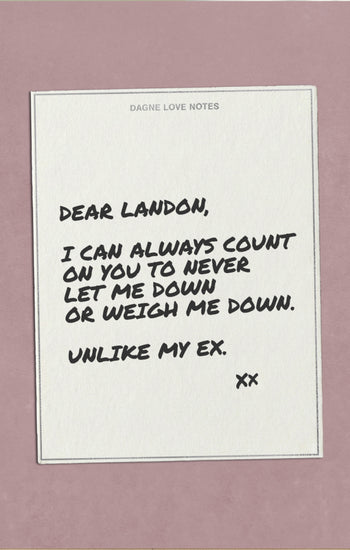 DAGNE LOVE NOTES
DEAR LANDON,
I CAN ALWAYS COUNT
ON YOU TO NEVER
LET ME DOWN
OR WEIGH ME DOWN.
UNLIKE MY EX.
XX